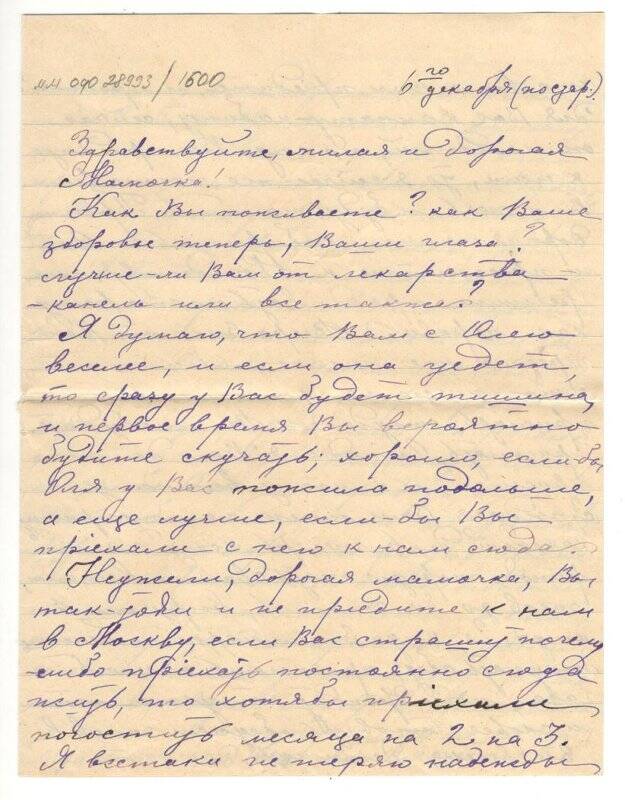 мм офо 28993/1600
6го декабря (по стар.)
Здравствуйте, милая и дорогая
Мамочка!
Какъ Вы поживаете? какъ Ваше
здоровье теперь, Ваши глаза?
лучше-ли Вам от лекарства
-капель или все также?
Я думаю, что Вам с Олею
веселее, и если она уедет,
то сразу у Вас будет тишина,
и первое время Вы вероятно
будите скучать; хорошо, если-бы
Оля у Вас пожила подольше,
а еще лучше, если-бы Вы
приехали с нею к нам сюда.
Неужели, дорогая мамочка, Вы
так и не приедите к нам
в Москву, если Вас страшит почему
-либо приехать постоянно сюда
жить, то хотябы приехали
погостить месяца на 2 на 3.
Я всетаки не теряю надежды